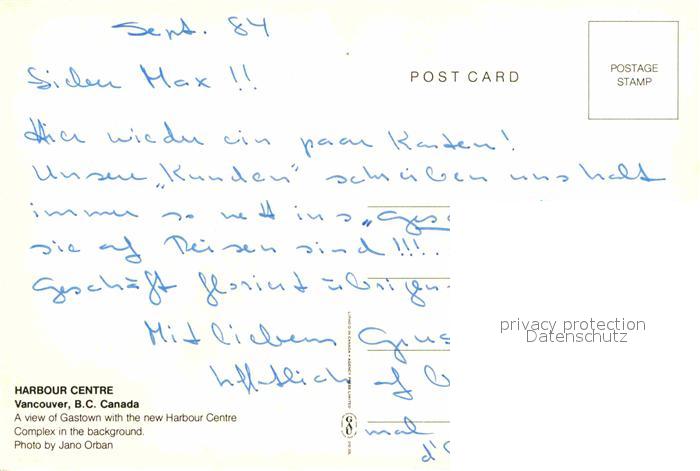 Sept. 84
Lieber Max !!
POST CARD
POSTAGE
STAMP
Hier wieder ein paar Karten!
Unsere „Kunden" schreiben uns halt
immer so nett ins „Ges
sie auf Reisen sind !!!.
Geschäft floriert übrigen
Mit liebem Grus
hoffentlich auf
mal
HARBOUR CENTRE
Vancouver, B.C. Canada
A view of Gastown with the new Harbour Centre
Complex in the background.
Photo by Jano Orban
privacy protection
Datenschutz